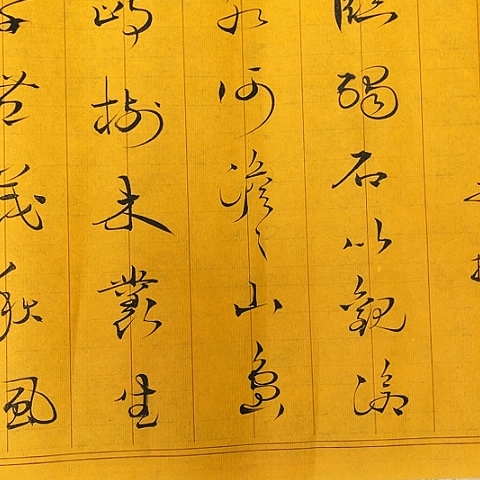 臨碣石以觀滄
水何澹〻山島
峙樹木叢生
草豐茂秋風